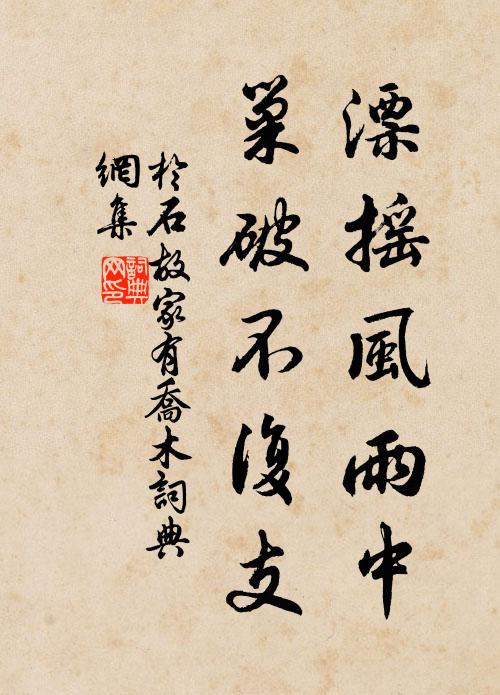 漂搖風雨中
巢破不復支
於石故家有喬木詞典
網集
詞典網印